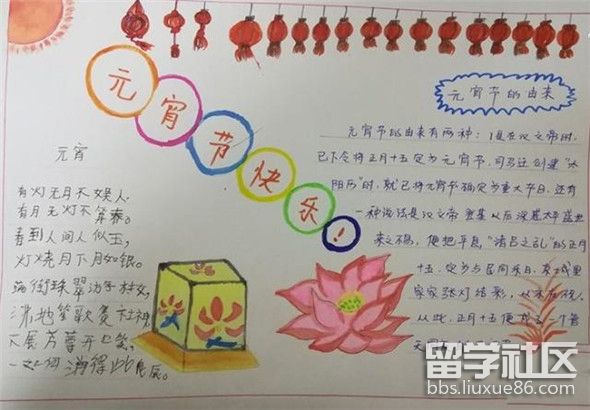 元宵节快乐!
元宵
有灯无月不娱人,
有月无灯不算春。
到人间人似玉,
灯烧月下月如银。
满街珠翠游村女,
沸地笙歌赛社神。
不展芳尊开口笑,
消得此良辰。
元宵节的由来
元宵节的由来有两种:1是在汉文帝时,
已下令将正月十五定为元宵节,司马迁创建"太
阳历"时,就已将元宵节确定为重大节日.还有
一种说法是汉文帝登基以后深感太平盛世
来之不易,便把平息"诸吕之乱"的正月
十五,定为与民同乐日,京城里
家家张灯结彩,以示庆祝.
从此,正月十五便成了一个
留学社区
bbs.liuxue86.com